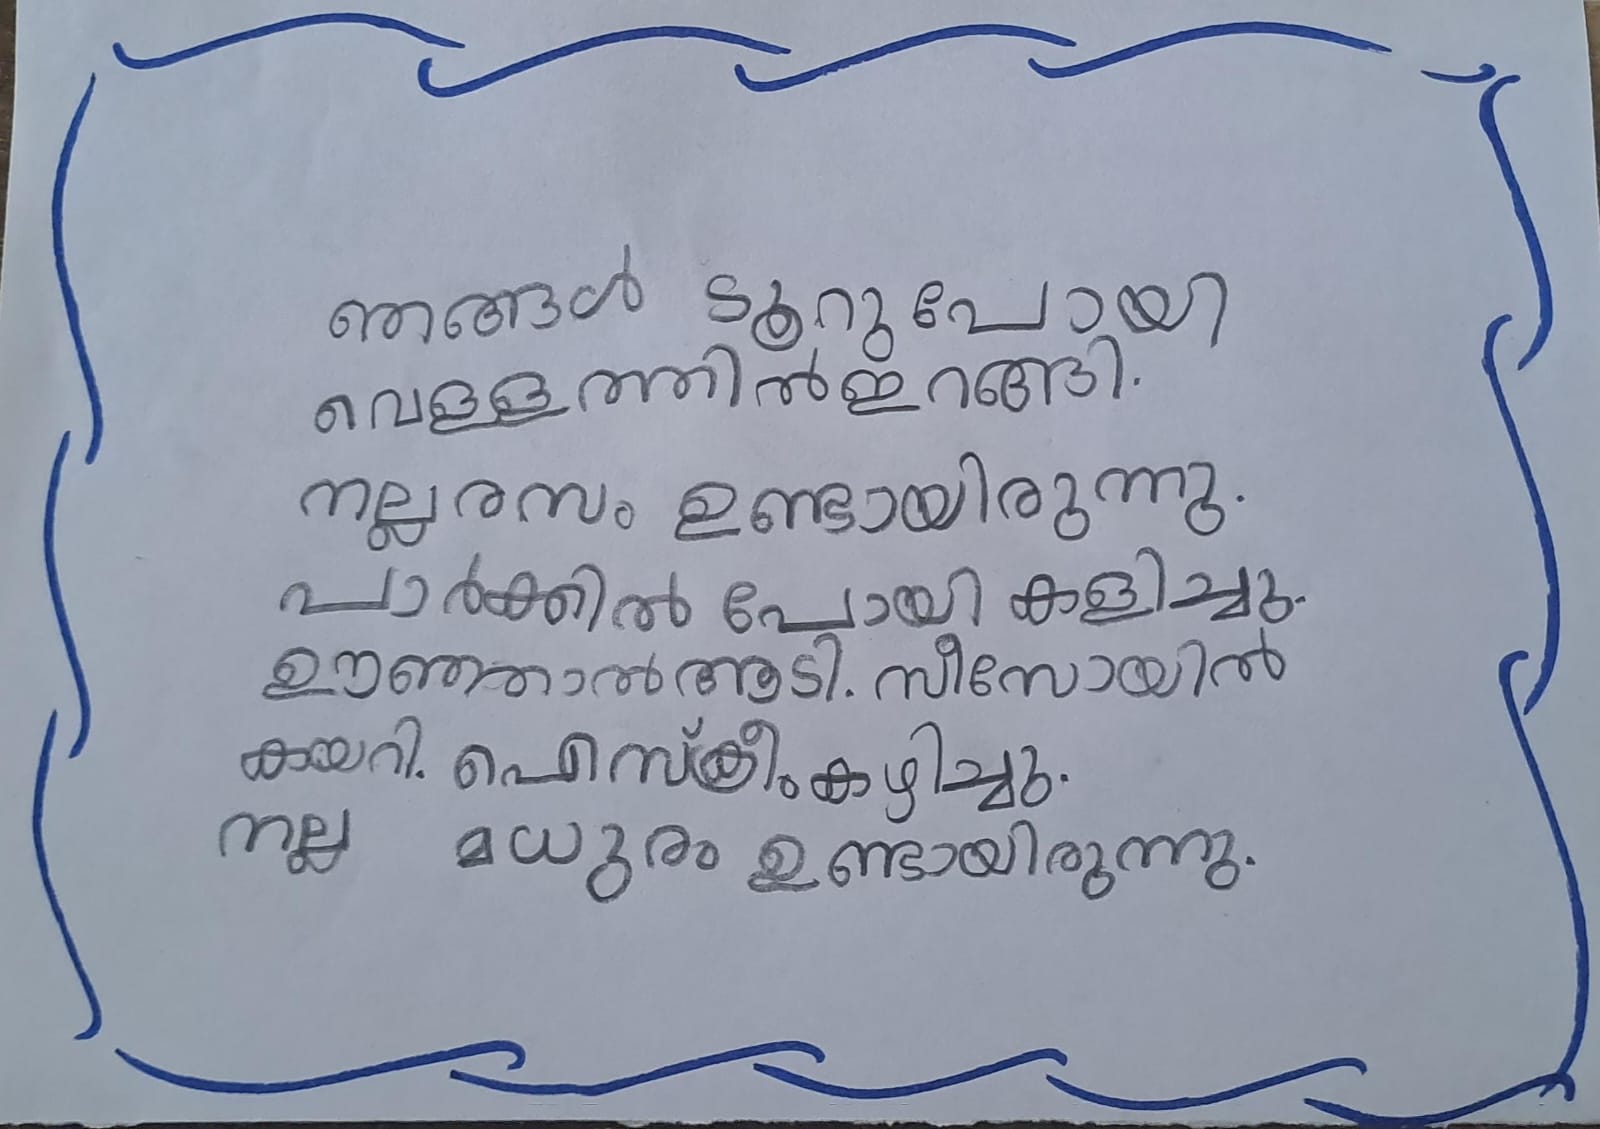 ഞങ്ങൾ ടൂറു പോയി
വെള്ളത്തിൽ ഇറങ്ങി.
നല്ല രസം ഉണ്ടായിരുന്നു.
പാർക്കിൽ പോയി കളിച്ചു.
ഊഞ്ഞാൽ ആടി. സീസോയിൽ
കയറി. ഐസ്ക്രീം കഴിച്ചു.
നല്ല മധുരം ഉണ്ടായിരുന്നു.